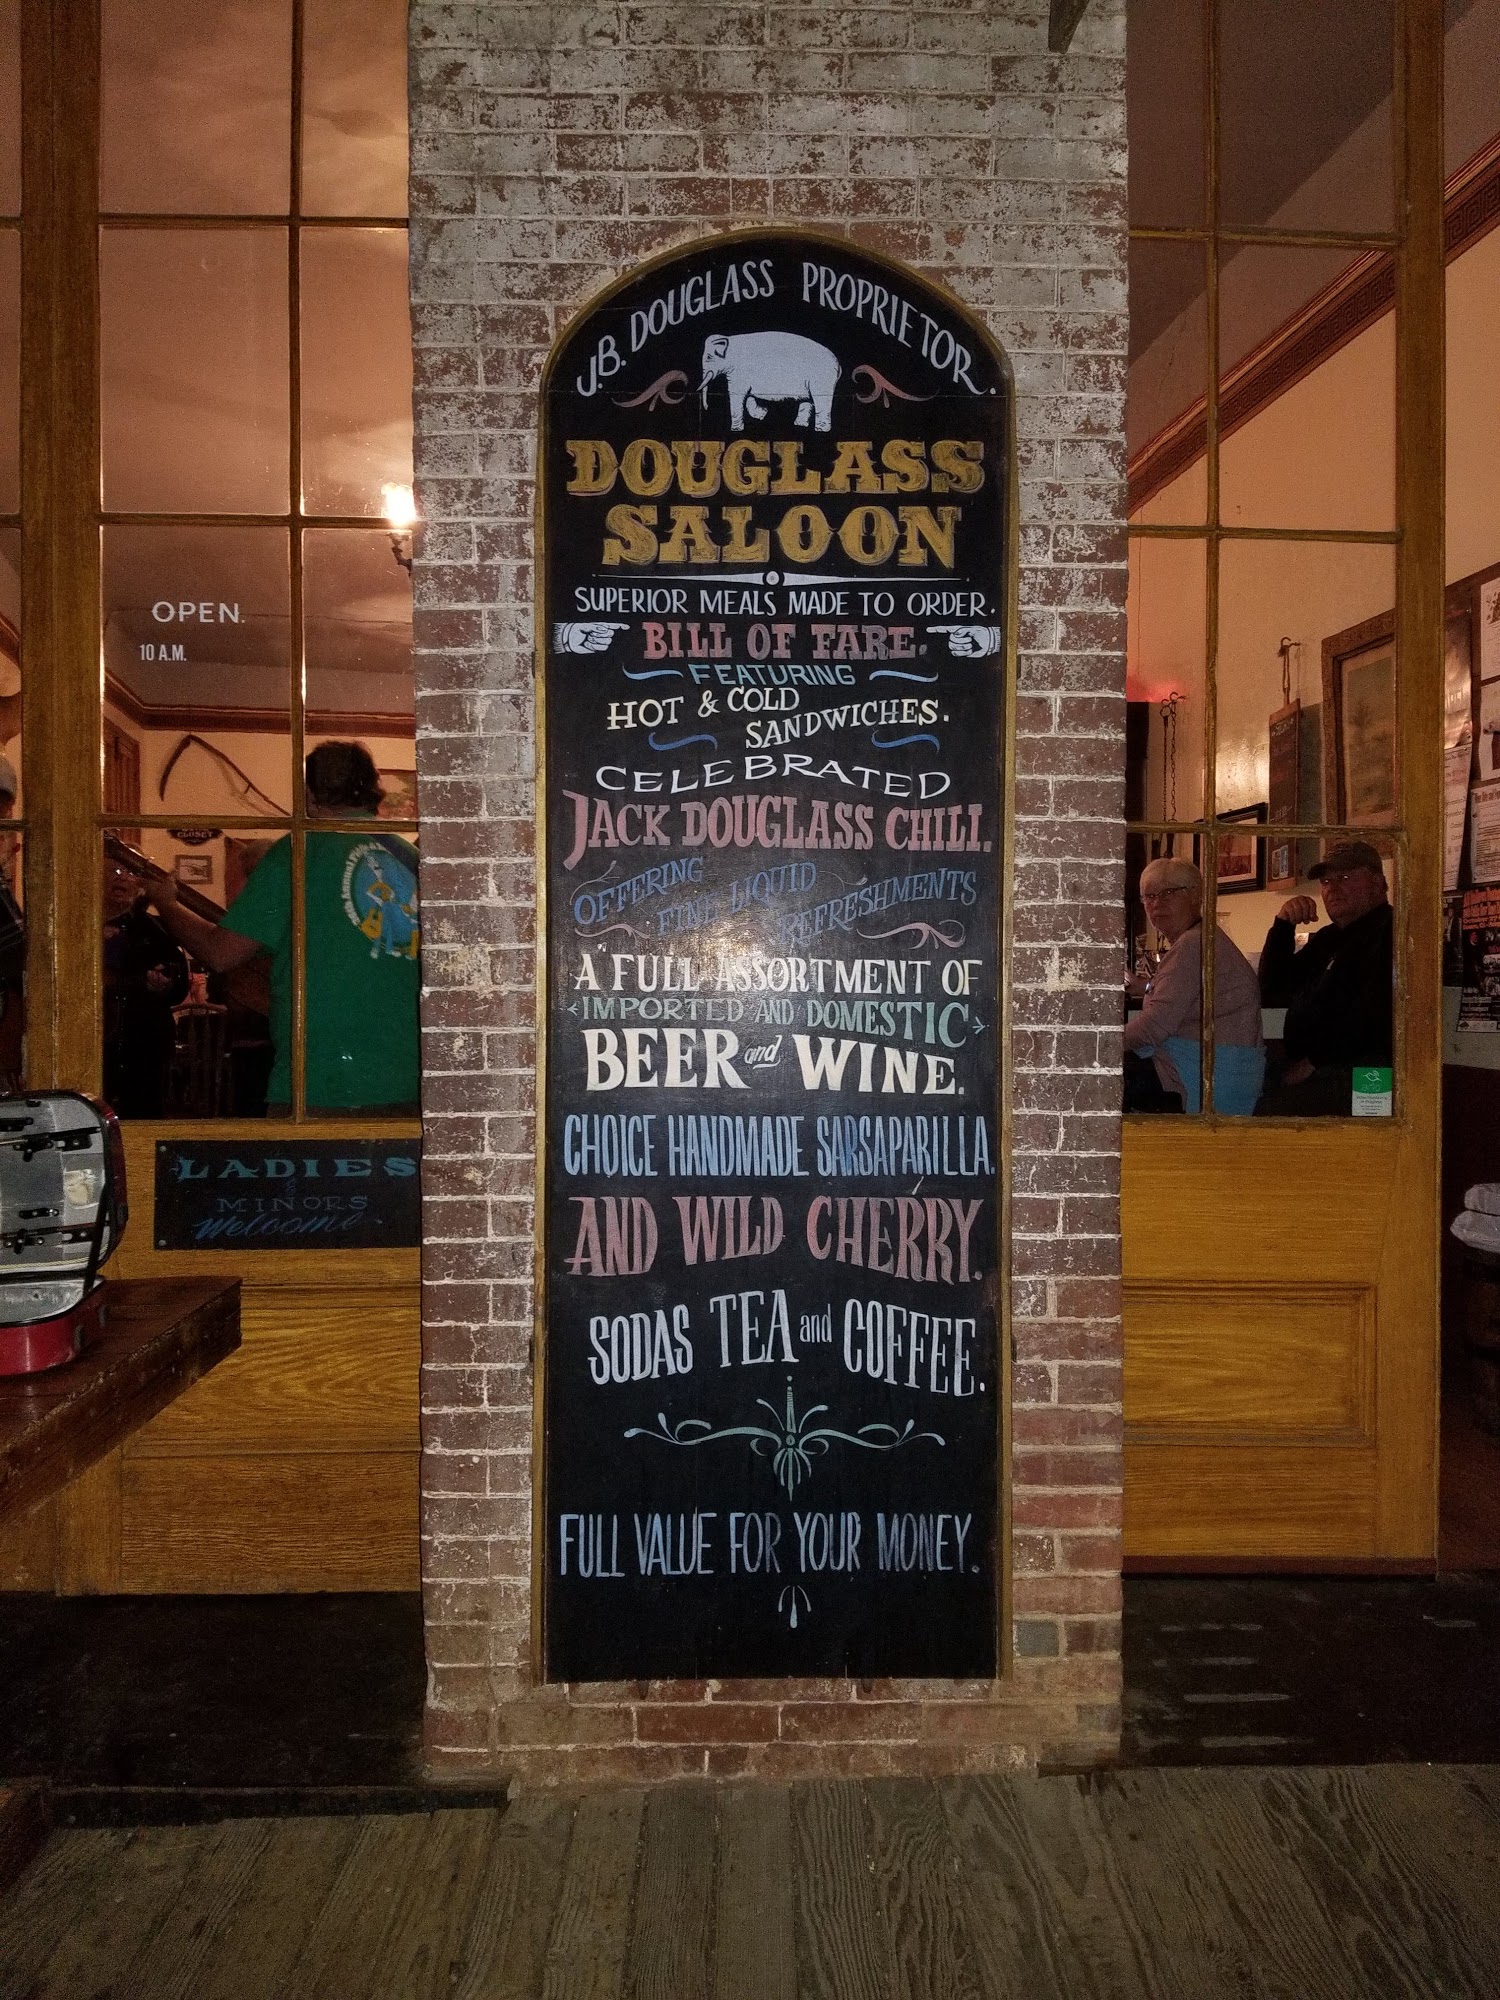 J.B. DOUGLASS PROPRIETOR.
DOUGLASS
SALOON
SUPERIOR MEALS MADE TO ORDER.
BILL OF FARE.
FEATURING
HOT & COLD
SANDWICHES.
CELEBRATED
JACK DOUGLASS CHILI.
OFFERING
FINE LIQUID
REFRESHMENTS
A FULL ASSORTMENT OF
IMPORTED AND DOMESTIC
BEER and WINE.
CHOICE HANDMADE SARSAPARILLA.
AND WILD CHERRY.
SODAS TEA and COFFEE.
FULL VALUE FOR YOUR MONEY.
OPEN.
10 A.M.
CLOSET
LADIES
&
MINORS
Welcome.